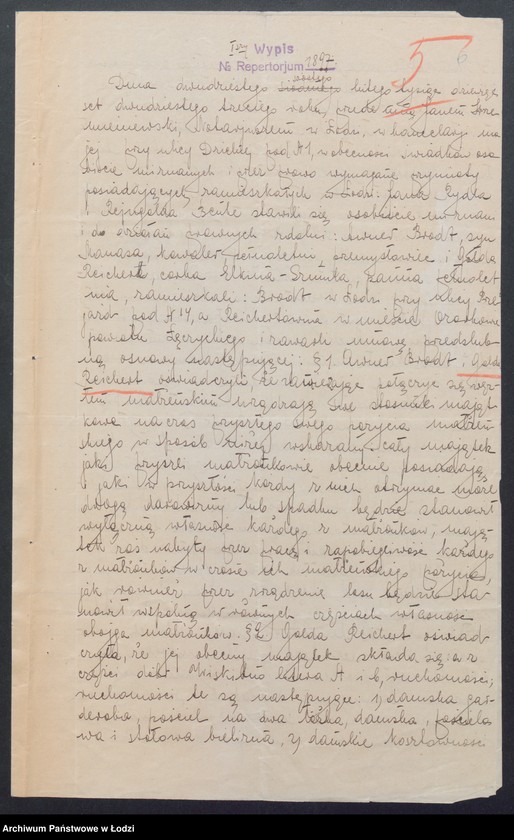 Iszy Wypis
№ Repertorjum 1897
5 6
Dnia dwudziestego szóstego lutego tysiąc dziewięć
set dwudziestego trzeciego roku, przede mną Janem Krze
mieniewskim, Notarjuszem w Łodzi, w kancelarji mo
jej przy ulicy Dzielnej pod № 1, w obecności świadków oso
biście mi znanych i przez prawo wymagane przymioty
posiadających, zamieszkałych w Łodzi: Jana Rydla
i Rejngolda Beute stawili się osobiście mi znani
i do działań prawnych zdolni: Awner Brodt, syn
Manasa, kawaler pełnoletni, przemysłowiec i Gołda
Reichert, córka Elkuna-Szmula, panna pełnolet
nia, zamieszkali: Brodt w Łodzi przy ulicy Pre
jazd pod № 14, a Reichertówna w mieście Ozorkowie
powiatu Łęczyckiego i zawarli umowę przedślub
ną osnowy następującej: § 1. Awner Brodt i Gołda
Reichert oświadczyli, że zamierzając połączyć się węz
łem małżeńskim urządzają swe stosunki mająt
kowe na czas przyszłego swego pożycia małżeń
skiego w sposób niżej wskazany: cały majątek
jaki przyszli małżonkowie obecnie posiadają
i jaki w przyszłości każdy z nich otrzymać może
drogą darowizny lub spadku będzie stanowił
wyłączną własność każdego z małżonków, mają
tek zaś nabyty przez pracę i zapobiegliwość każdego
z małżonków w czasie ich małżeńskiego pożycia,
jak również przez zrządzenie losu będzie sta
nowił wspólną w równych częściach własność
obojga małżonków. § 2. Gołda Reichert oświad
czyła, że jej obecny majątek składa się: a/ z
części dóbr litera A i b/ ruchomości;
ruchomości te są następujące: 1/ damska gar
deroba, pościel na dwa łóżka, damska, pościelo
wa i stołowa bielizna, 2/ damskie kosztowności
Archiwum Państwowe w Łodzi